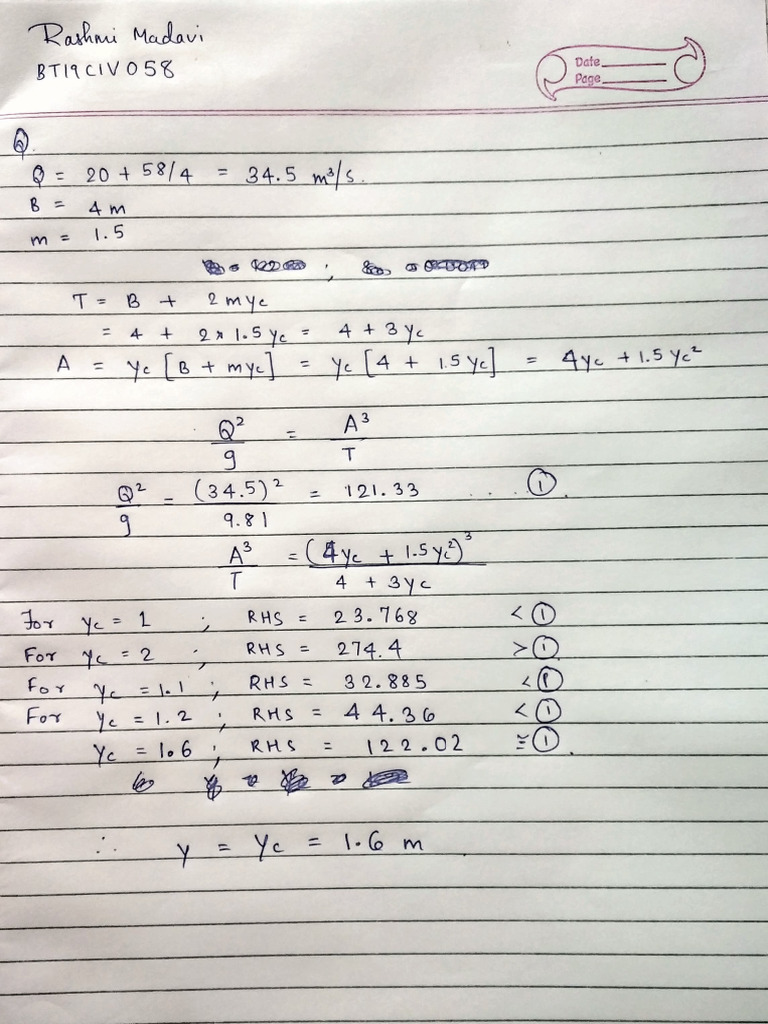 Rashmi Madavi
BT19CIV058
Date
Page
Q.
Q = 20 + 58/4 = 34.5 m³/s.
B = 4 m
m = 1.5
T = B + 2myc
= 4 + 2 x 1.5 yc = 4 + 3yc
A = yc [B + myc] = yc [4 + 1.5yc] = 4yc + 1.5yc²
Q²/g = A³/T
Q²/g = (34.5)²/9.81 = 121.33 .... ①.
A³/T = (4yc + 1.5yc²)³/4 + 3yc
For yc = 1 ; RHS = 23.768 < ①
For yc = 2 ; RHS = 274.4 > ①
For yc = 1.1 ; RHS = 32.885 < ①
For yc = 1.2 ; RHS = 44.36 < ①
yc = 1.6 ; RHS = 122.02 ≅ ①.
∴ y = yc = 1.6 m